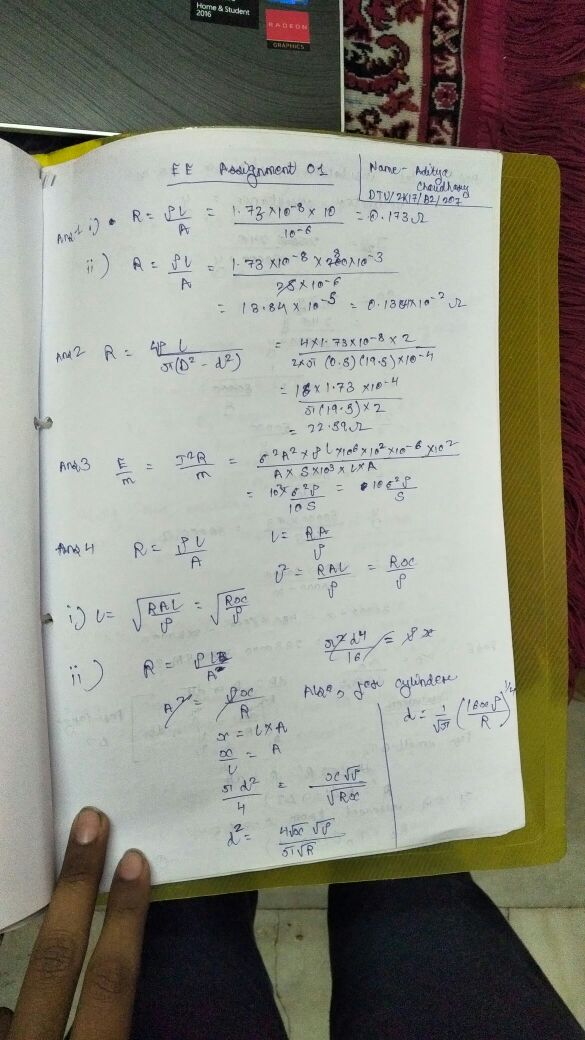 Home & Student
2016
RADEON
GRAPHICS
EE Assignment 01
Name- Aditya
Choudhary
DTU/2K17/A2/207
Ans1 i) R = ρl/A = 1.73×10^-8 × 10 / 10^-6 = 0.173Ω
ii) R = ρl/A = 1.73 ×10^-8 × ×10^-3 / ×10^-6
= 13.84 × 10^-5 = 10^-2 Ω
Ans2 R = 4ρl / π(D² - d²) = 4×1.73×10^-8 × 2 / 2×π (0.5)(19.5)×10^-4
= ×1.73 ×10^-4 / π(19.5)×2
= 22.59Ω
Ans3 E/m = I²R/m = σ²A² × ρl ×10^6×10²×10^-6×10² / A × S×10³ × l×A
= σ²ρ / 10S = 10σ²ρ / S
Ans4 R = ρl/A l = RA/ρ
l² = RAl/ρ = Rx/ρ
i) l = √(RAl/ρ) = √(Rx/ρ)
ii) R = ρl / A²
π²d⁴/16 = x
A² = ρx/R
Also, for cylinder
x = l×A
d = 1/√π (16xρ/R)^1/4
x/l = A
πd²/4 = x√ρ/√Rx
d² = 4√x √ρ / π√R